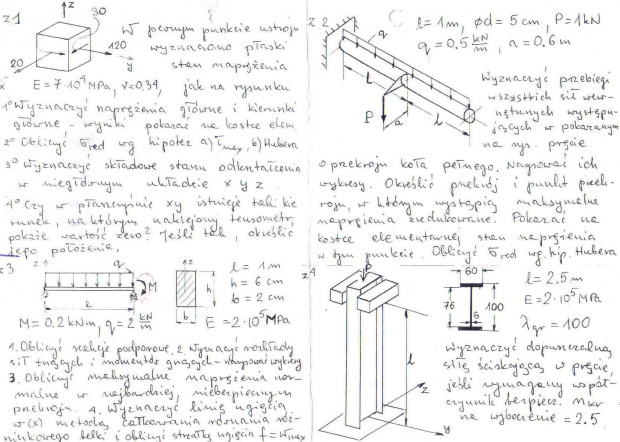 z1
z
30
120
20
x
y
W pewnym punkcie ustroju
wyznaczono płaski
stan naprężenia
E = 7·10⁴ MPa, ν=0,34, jak na rysunku
1° Wyznaczyć naprężenia główne i kierunki
główne – wyniki pokazać na kostce elem.
2° Obliczyć σred wg hipotez a) τmax, b) Hubera
3° Wyznaczyć składowe stanu odkształcenia
w niegłównym układzie x y z.
4° Czy w płaszczyźnie xy istnieje taki kie
runek, na którym naklejony tensometr,
pokaże wartość zero? Jeśli tak, określić
jego położenie.
z2
q
l
l
P
a
l = 1m, ød = 5cm, P = 1kN
q = 0.5 kN/m, a = 0.6m
Wyznaczyć przebiegi
wszystkich sił wew-
nętrznych występu-
jących w pokazanym
na rys. pręcie
o przekroju koła pełnego. Narysować ich
wykresy. Określić przekrój i punkt przek-
roju, w którym wystąpią maksymalne
naprężenia zredukowane. Pokazać na
kostce elementarnej stan naprężenia
w tym punkcie. Obliczyć σred wg. hip. Hubera
z3
z
q
M
l
z
h
b
y
l = 1m
h = 6 cm
b = 2 cm
M = 0.2 kNm, q = 2 kN/m
E = 2·10⁵ MPa
1. Obliczyć reakcje podporowe, 2. Wyznaczyć rozkłady
sił tnących i momentów gnących – narysować wykresy
3. Obliczyć maksymalne naprężenia nor-
malne w najbardziej niebezpiecznym
przekroju. 4. Wyznaczyć linię ugięcia
w(x) metodą całkowania równania róż-
niczkowego belki i obliczyć strzałkę ugięcia f = wmax
z4
P
l
z
y
60
76
100
6
l = 2.5m
E = 2·10⁵ MPa
λgr = 100
Wyznaczyć dopuszczalną
siłę ściskającą w pręcie,
jeśli wymagany współ-
czynnik bezpiecz.
na wyboczenie = 2.5